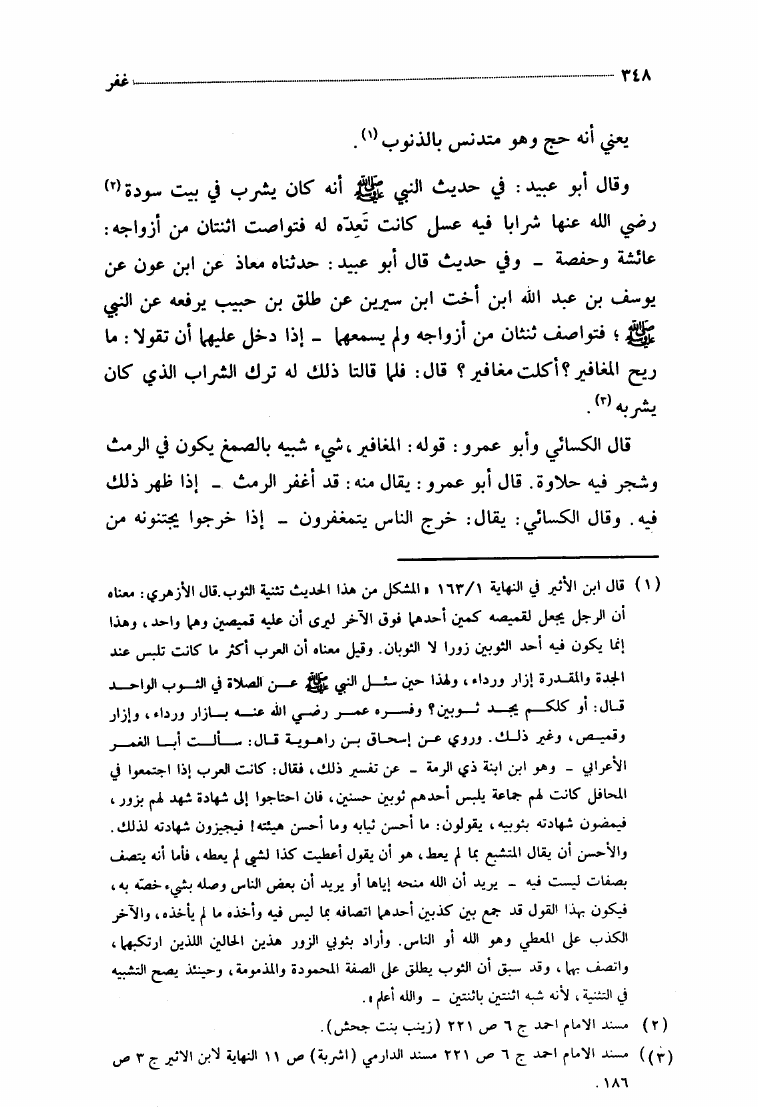 ٣٤٨ غفر
يعني أنه حج وهو متدنس بالذنوب (١) .
وقال أبو عبيد : في حديث النبي ﷺ أنه كان يشرب في بيت سودة (٢)
رضي الله عنها شرابا فيه عسل كانت تَعِدّه له فتواصت اثنتان من أزواجه :
عائشة وحفصة - وفي حديث قال أبو عبيد : حدثناه معاذ عن ابن عون عن
يوسف بن عبد الله ابن أخت ابن سيرين عن طلق بن حبيب يرفعه عن النبي
ﷺ ؛ فتواصف ثنثان من أزواجه ولم يسمعهما - إذا دخل عليهما أن تقولا : ما
ريح المغافير ؟ أكلت مغافير ؟ قال : فلما قالتا ذلك له ترك الشراب الذي كان
يشربه (٣) .
قال الكسائي وأبو عمرو : قوله : المغافير ، شيء شبيه بالصمغ يكون في الرمث
وشجر فيه حلاوة . قال أبو عمرو : يقال منه : قد أغفر الرمث - إذا ظهر ذلك
فيه . وقال الكسائي : يقال : خرج الناس يتمغفرون - إذا خرجوا يجتنونه من
(١) قال ابن الأثير في النهاية ١٦٣/١ « المشكل من هذا الحديث تثنية الثوب . قال الأزهري : معناه
أن الرجل يجعل لقميصه كمين أحدهما فوق الآخر ليرى أن عليه قميصين وهما واحد ، وهذا
إنما يكون فيه أحد الثوبين زورا لا الثوبان . وقيل معناه أن العرب أكثر ما كانت تلبس عند
الجدة والمقدرة إزار ورداء ، ولهذا حين سئل النبي ﷺ عن الصلاة في الثوب الواحد
قال : أو كلكم يجد ثوبين ؟ وفسره عمر رضي الله عنه بازار ورداء ، وإزار
وقميص ، وغير ذلك . وروي عن إسحاق بن راهوية قال : سألت أبا الغمر
الأعرابي - وهو ابن ابنة ذي الرمة - عن تفسير ذلك ، فقال : كانت العرب إذا اجتمعوا في
المحافل كانت لهم جماعة يلبس أحدهم ثوبين حسنين ، فان احتاجوا إلى شهادة شهد لهم بزور ،
فيمضون شهادته بثوبيه ، يقولون : ما أحسن ثيابه وما أحسن هيئته ! فيجيزون شهادته لذلك .
والأحسن أن يقال المتشبع بما لم يعط ، هو أن يقول أعطيت كذا لشي لم يعطه ، فأما أنه يتصف
بصفات ليست فيه - يريد أن الله منحه إياها أو يريد أن بعض الناس وصله بشيء خصّه به ،
فيكون بهذا القول قد جمع بين كذبين أحدهما اتصافه بما ليس فيه وأخذه ما لم يأخذه ، والآخر
الكذب على المعطي وهو الله أو الناس . وأراد بثوبي الزور هذين الحالين اللذين ارتكبهما ،
واتصف بهما ، وقد سبق أن الثوب يطلق على الصفة المحمودة والمذمومة ، وحينئذ يصح التشبيه
في التثنية ، لأنه شبه اثنتين باثنتين - والله أعلم » .
(٢) مسند الامام احمد ج ٦ ص ٢٢١ (زينب بنت جحش) .
((٣) مسند الامام احمد ج ٦ ص ٢٢١ مسند الدارمي (اشربة) ص ١١ النهاية لابن الاثير ج ٣ ص
١٨٦ .